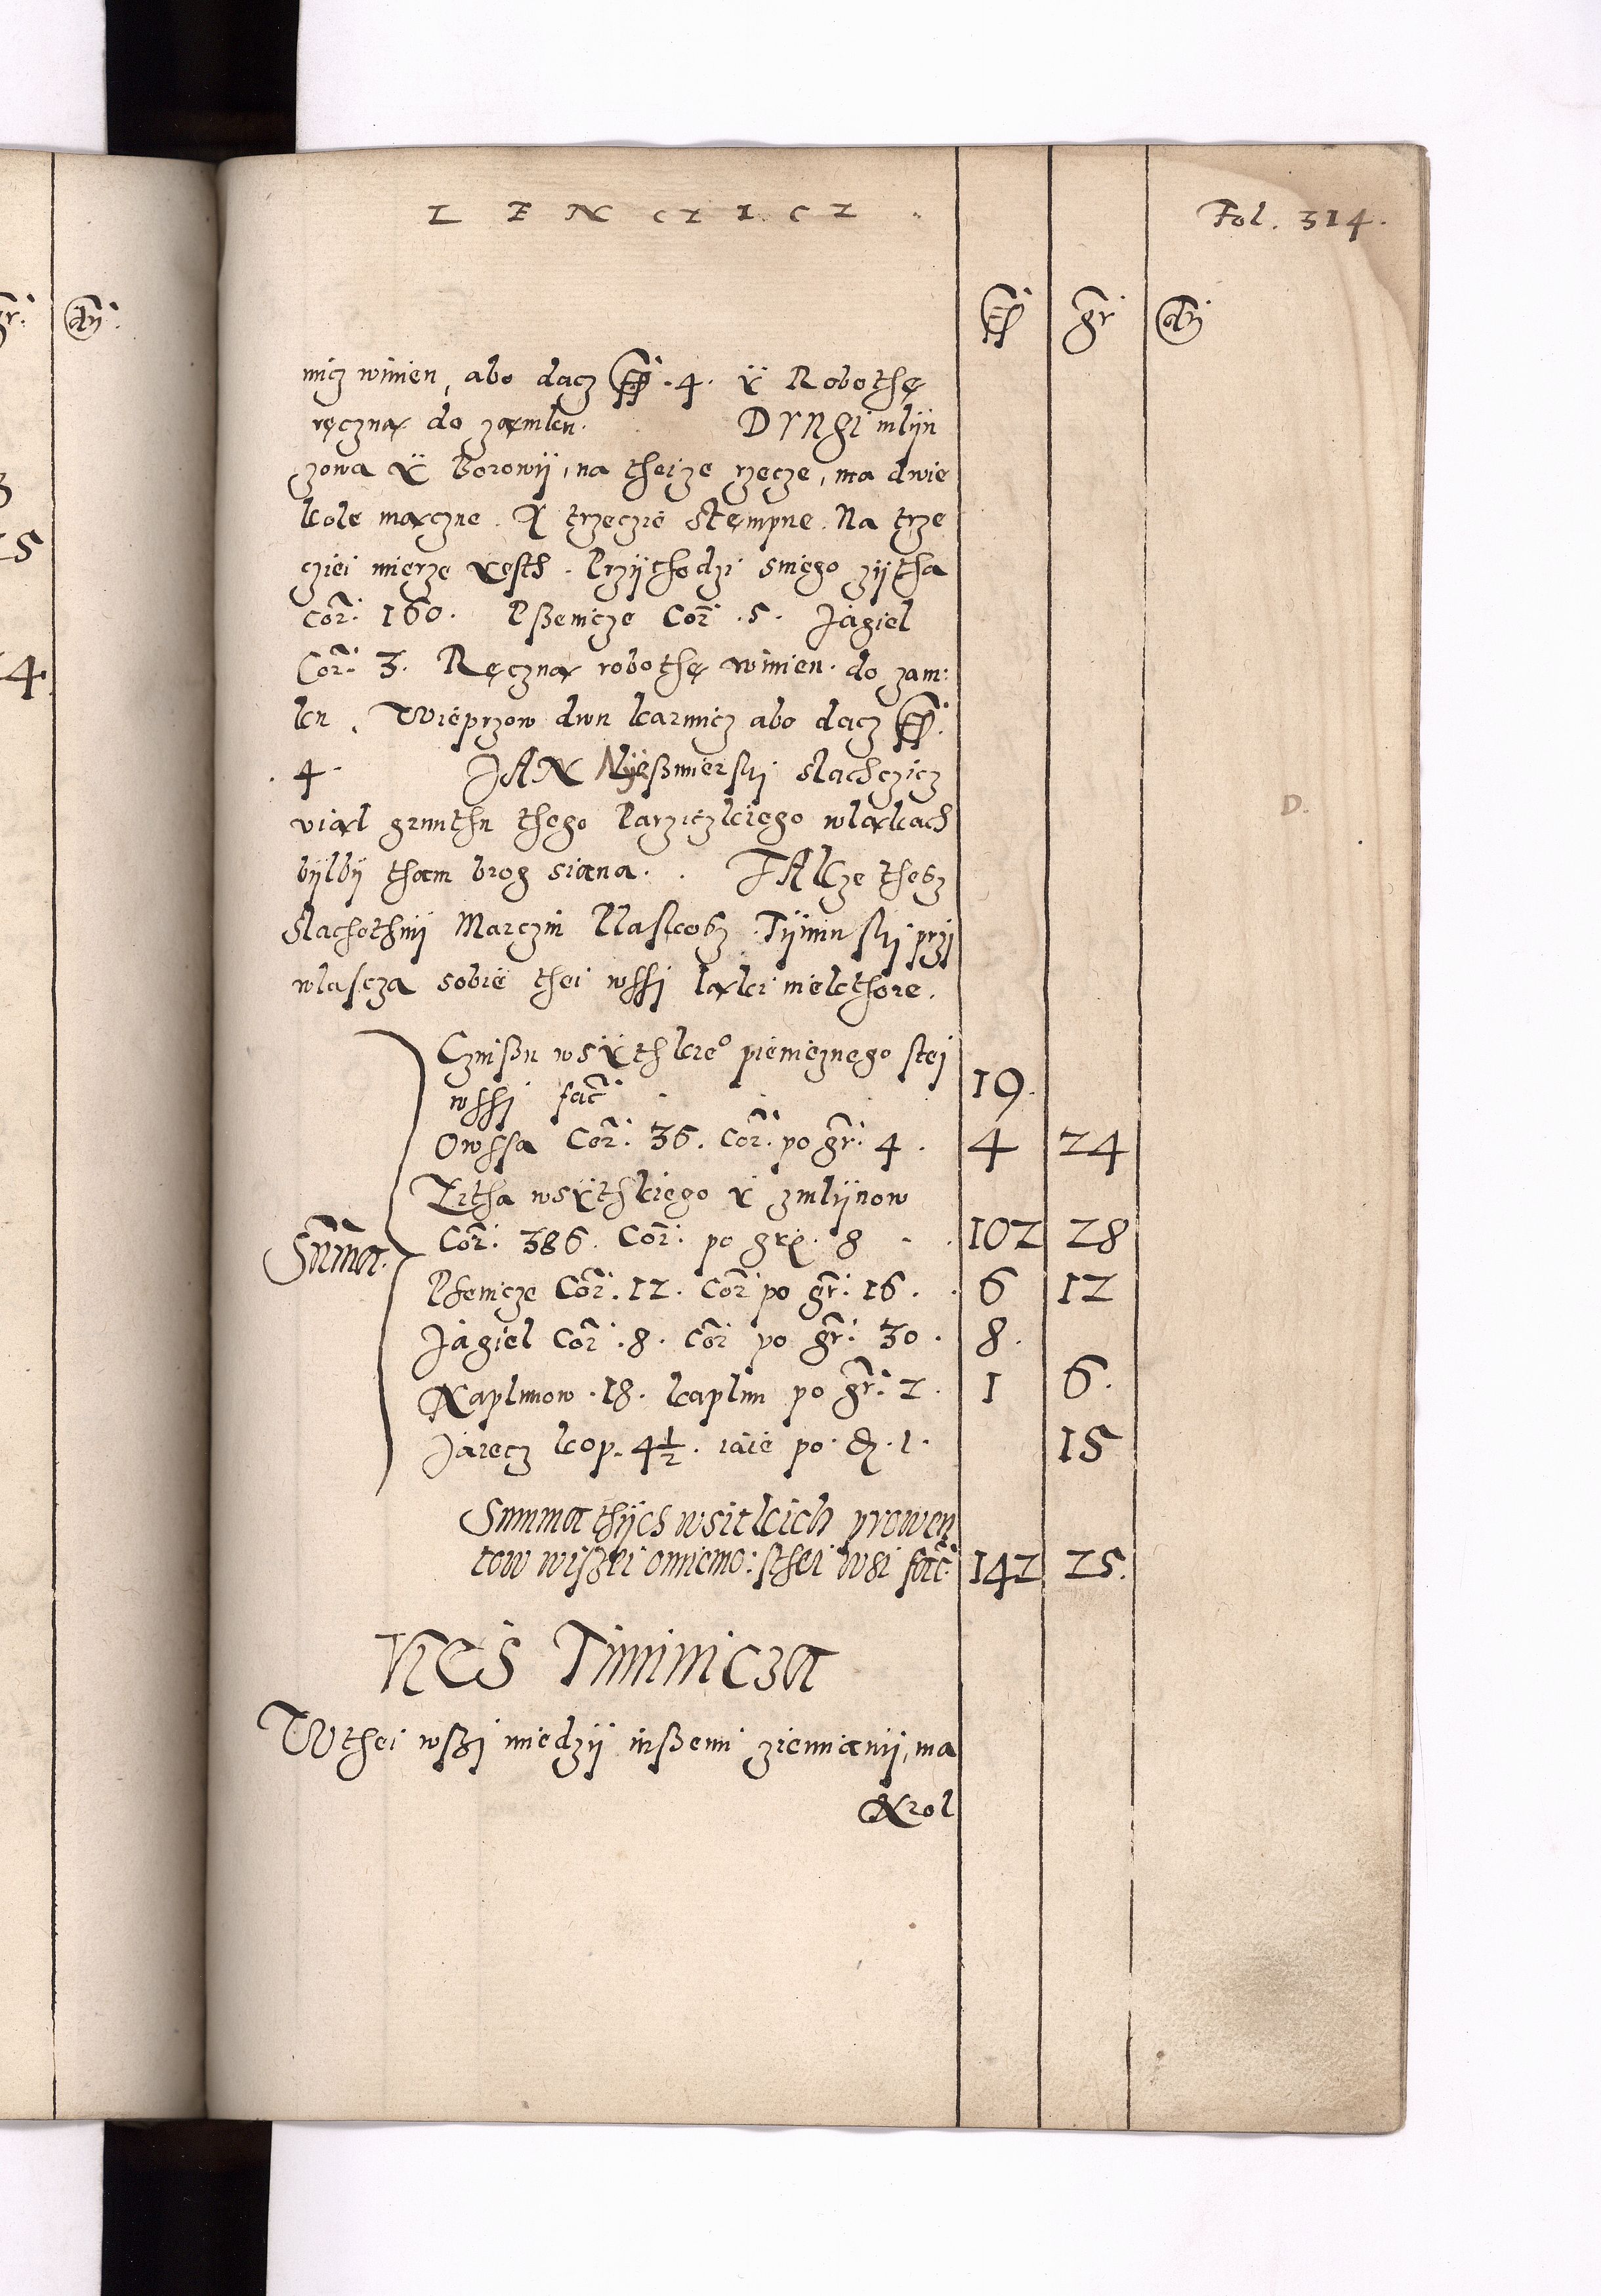 LENCZICZ.
Fol. 314.
fl. gr dn
micz winien, abo dacz fl. 4. ÿ Robothę
ręczną do zamku. DRUGI mlÿn
zowią ÿ Borowÿ, na theize rzecze, ma dwie
kole mączne. A trzeczie stempne. Na trze
cziei mierze iesth. Przÿchodzi sniego zÿtha
Cor. 160. Pßenicze Cor. 5. Jagieł
Cor. 3. Ręczną robothę winien do zam:
ku. Wieprzow dwu karmicz abo dacz fl.
4. JAN Nÿeßmierski slachczicz
uiął grunthu thego Parziczkiego włąkach
bÿłbÿ tham brog siana. TAKze thesz
slachethnÿ Marczin Plaskosz Tÿmiński przÿ
włascza sobie thei wssi łąki niekthore.
Czinßu wsÿthkiego pienieznego stej
wssi facit 19.
Owssa Cor. 36. Cor. po gr. 4. 4 24
Zitha wsÿthkiego ÿ zmlÿnow
Summa. Cor. 386. Cor. po gr. 8 102 28
Psenicze Cor. 12. Cor po gr. 16. 6 12
Jagieł Cor. 8. Cor po gr. 30. 8.
Kapłunow 18. kapłun po gr. 2. 1 6.
Jaiecz kop. 4½. iaie po d. 1. 15
Summa thÿch wsitkich prowen
tow wiszei omiemo: sthei wsi facit 142 25.
WIES Timinicza
W thei wßi miedzÿ inßemi ziemianÿ, ma
Krol
D.